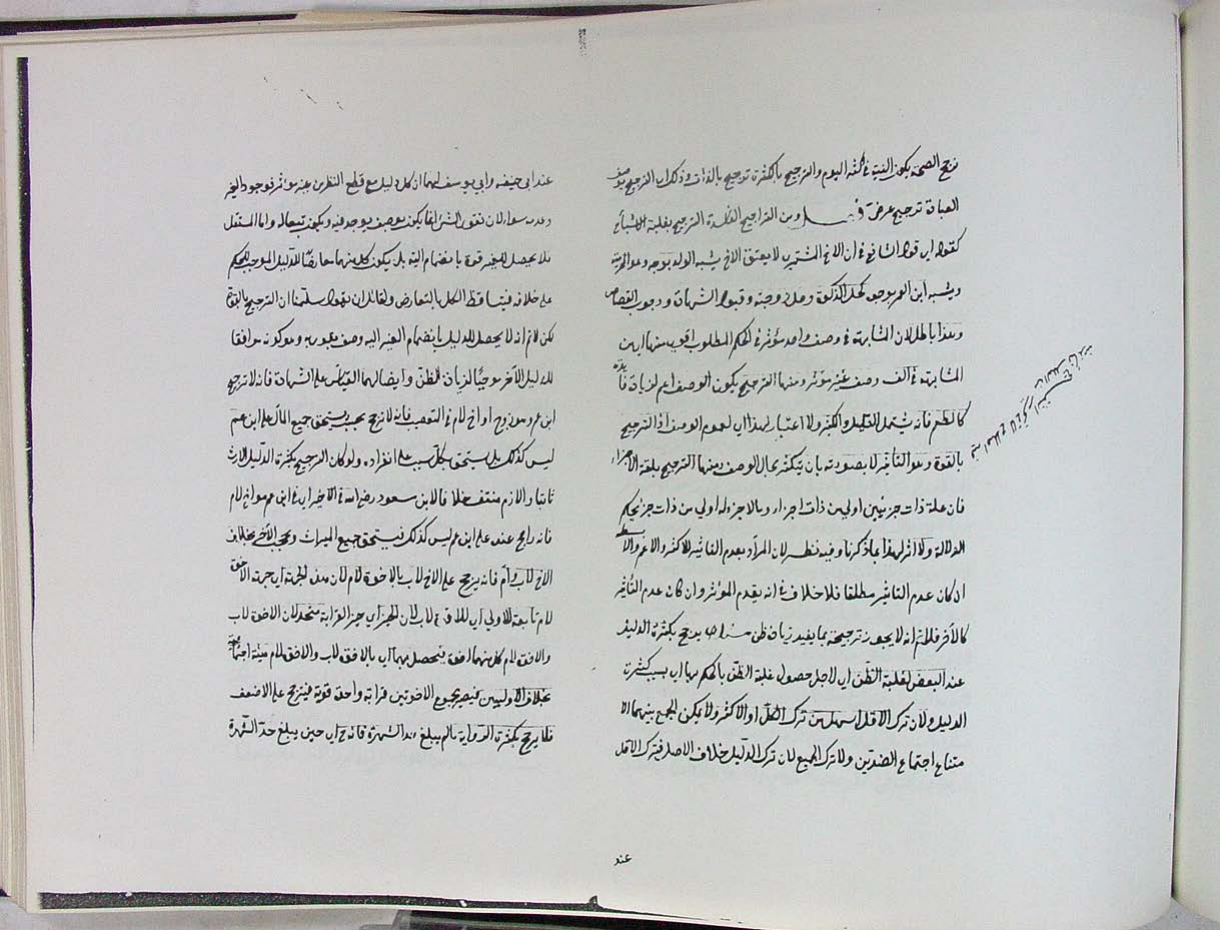 نرجح الصحة بكون النية في اكثر اليوم والترجيح بالكثرة ترجيح بالذات وذلك اي الترجيح بوصف
العبادة ترجيح عرضي ومن التراجيح الفاسدة الترجيح بغلبة الاشباه
كقوله اي قول الشافعي في ان الاخ المشتري لا يعتق الاخ يشبه الولد بوجه وهو المحرمية
ويشبه ابن العم بوجوه كحل الزكوة وحل زوجته وقبول الشهادة ووجوب القصاص
وهذا باطل لان المشابهة في وصف واحد مؤثر في الحكم المطلوب اقوى منها اي من
المشابهة في الف وصف غير مؤثر ومنها الترجيح بكون الوصف اعم لزيادة فائدته
كالطعم فانه يشمل القليل والكثير ولا اعتبار لهذا اي لعموم الوصف اذ الترجيح
بالقوة وهو التأثير لا بصورته بان يتكثر محال الوصف ومنها الترجيح بقلة الاجزاء
فان علة ذات جزئين اولى من ذات اجزاء وما لا جزء له اولى من ذات جزء بحكم
الدلالة ولا اثر لهذا بما ذكرنا وفيه نظر لان المراد بعدم التاثير للاكثر والاعم والابسط
ان كان عدم التاثير مطلقا فلا خلاف في انه يقدم المؤثر وان كان عدم التأثير
كالآخر فلا نم انه لا يجوز ترجيحه بما يفيد زيادة ظن يرجح بكثرة الدليل
عند البعض لغلبة الظن اي لاجل حصول غلبة الظن بالحكم بها اي بسبب كثرة
الدليل ولان ترك الاقل اسهل من ترك الكل او الاكثر ولا يمكن الجمع بينهما لا
متناع اجتماع الضدين ولا ترك الجميع لان ترك الدليل خلاف الاصل فيترك الاقل
عند
عند ابي حنيفة وابي يوسف لهما ان كل دليل مع قطع النظر عن غيره مؤثر فوجود الغير
وعدمه سواء لان تقوى الشئ انما يكون بوصف يوجد فيه ويكون تبعا له واما المستقل
فلا يحصل للغير قوة بانضمام اليه بل يكون كل منهما معارضا للدليل الموجب للحكم
على خلافه فيتساقط الكل بالتعارض ولقائل ان يقول سلمنا ان الترجيح بالقوة
لكن لا نم انه لا يحصل للدليل بانضمام الغير اليه وصف يقوى به وهو كونه موافقا
للدليل الآخر موجبا لزيادة الظن وايضا لهما القياس على الشهادة فانه لا ترجيح
ابن عم هو زوج او اخ لام في التعصيب فانه لا ترجح بحيث يستحق جميع المال على ابن عم
ليس كذلك بل يستحق بكل سبب على انفراده ولو كان الترجيح بكثرة الدليل لارث
ثابتا واللازم منتف خلافا لابن مسعود رضي الله في الاخير اي في ابن عم هو اخ لام
فانه راجح عنده على ابن عم ليس كذلك فيستحق جميع الميراث ويحجب الآخر بخلاف
الاخ لاب وام فانه يرجح على الاخ لاب بالاخوة لام لان هذه الجهة اي جهة الاخوة
لام تابعة للاولى اي للاخوة لاب لان الحيز اي حيز القرابة متحد لان الاخوة لاب
والاخوة لام كل منهما اخوة فيحصل بهما اي بالاخوة لاب والاخوة لام هيئة اجتماعية
بخلاف الاوليين فيصير مجموع الاخوتين قرابة واحدة قوية فيترجح على الاضعف
فلا يرجح بكثرة الرواية ما لم يبلغ حد الشهرة فانه ح اي حين يبلغ حد الشهرة